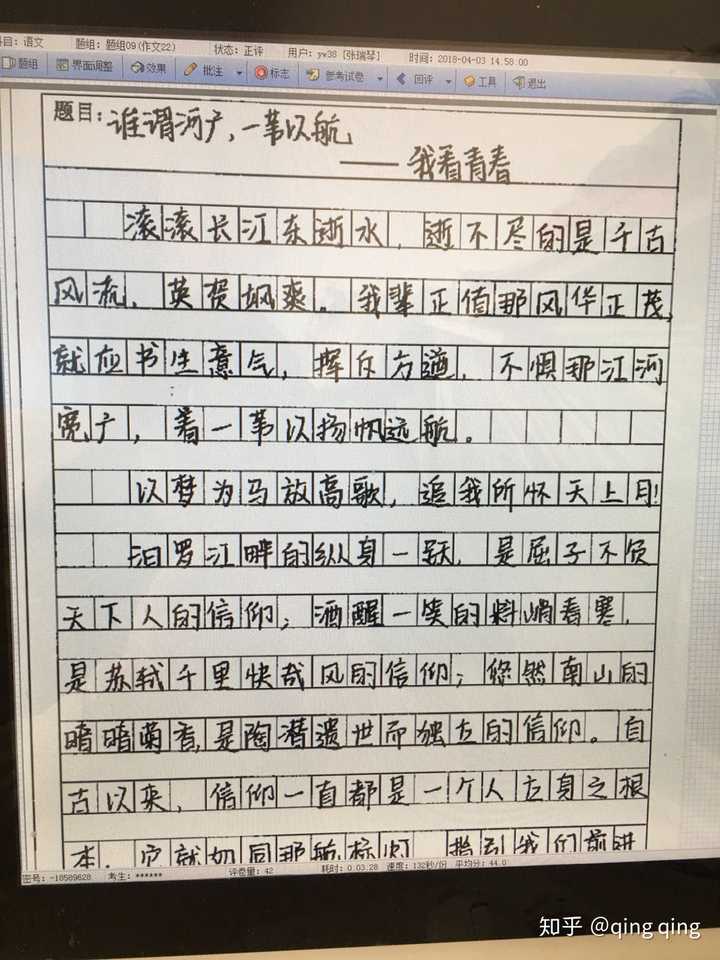 科目：语文 题组：题组09(作文22) 状态：正评 用户：yw38 [张瑞琴] 时间：2018-04-03 14.58.00
题组 界面调整 效果 批注 标志 参考试卷 回评 工具 退出
题目：谁谓河广，一苇以航
——我看青春
滚滚长江东逝水，逝不尽的是千古
风流，英贺飒爽。我辈正值那风华正茂，
就应书生意气，挥斥方遒，不惧那江河
宽广，着一苇以扬帆远航。
以梦为马放高歌，追我所怀天上月！
汨罗江畔的纵身一跃，是屈子不负
天下人的信仰；酒醒一笑的料峭春寒，
是苏轼千里快哉风的信仰；悠然南山的
暗暗菊香，是陶潜遗世而独立的信仰。自
古以来，信仰一直都是一个人立身之根
本，它就如同那航标灯，指引我们前进
密号：-18589628 考生：****** 评卷量：42 耗时：0.03.28 速度：132秒/份 平均分：44.0
知乎 @qing qing